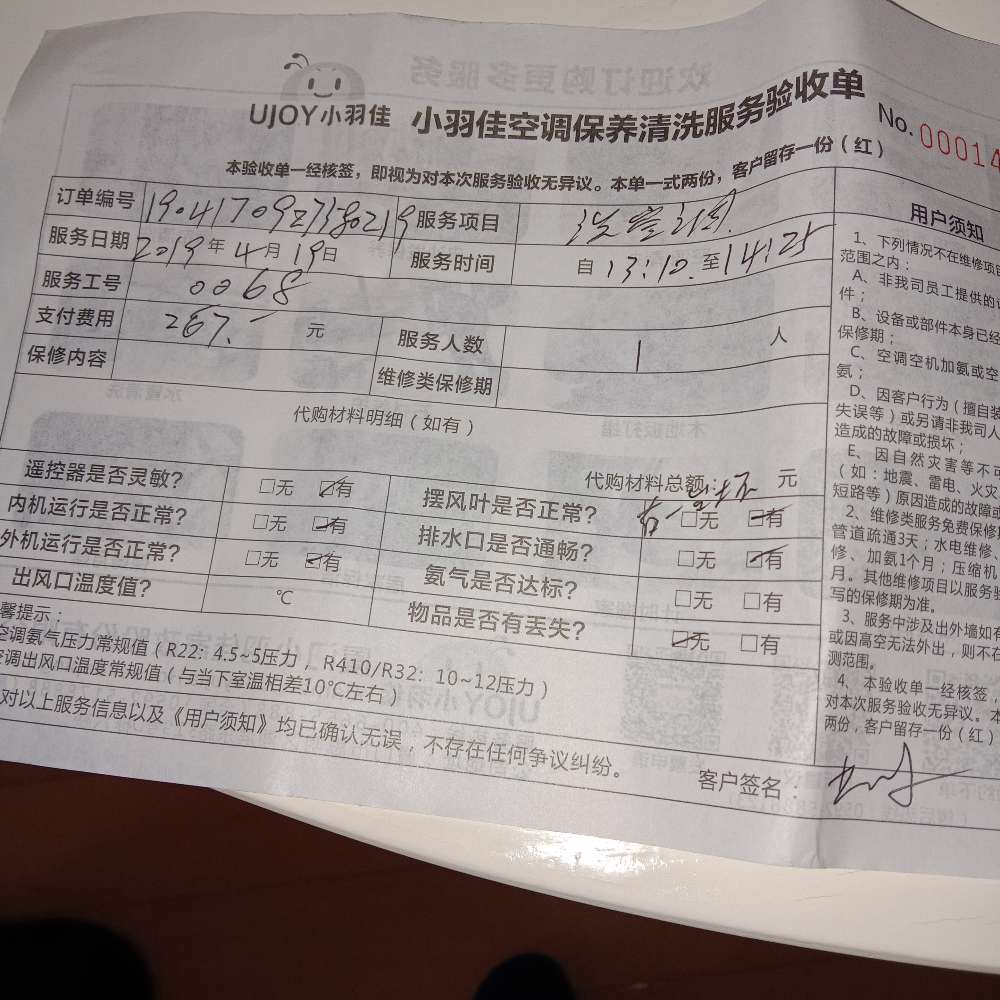 UJOY小羽佳 小羽佳空调保养清洗服务验收单
No.00014
本验收单一经核签，即视为对本次服务验收无异议。本单一式两份，客户留存一份（红）
订单编号 服务项目
服务日期 2019年4月19日 服务时间 自13:10.至14:25
服务工号 0068
支付费用 267.- 元 服务人数 1 人
保修内容 维修类保修期
代购材料明细（如有）
代购材料总额： 元
遥控器是否灵敏？ □无 ☑有 摆风叶是否正常？ □无 ☑有
内机运行是否正常？ □无 ☑有 排水口是否通畅？ □无 ☑有
外机运行是否正常？ □无 ☑有 氨气是否达标？ □无 □有
出风口温度值？ ℃ 物品是否有丢失？ ☑无 □有
馨提示：
空调氨气压力常规值（R22：4.5~5压力，R410/R32：10~12压力）
空调出风口温度常规值（与当下室温相差10℃左右）
对以上服务信息以及《用户须知》均已确认无误，不存在任何争议纠纷。
客户签名：
用户须知
1、下列情况不在维修项目
范围之内：
A、非我司员工提供的
件；
B、设备或部件本身已经
保修期；
C、空调空机加氨或空
氨；
D、因客户行为（擅自装
失误等）或另请非我司人
造成的故障或损坏；
E、因自然灾害等不可
（如：地震、雷电、火灾
短路等）原因造成的故障或
2、维修类服务免费保修期
管道疏通3天；水电维修
修、加氨1个月；压缩机
月。其他维修项目以服务验
写的保修期为准。
3、服务中涉及出外墙如有
或因高空无法外出，则不在
测范围。
4、本验收单一经核签，
对本次服务验收无异议。本
两份，客户留存一份（红）